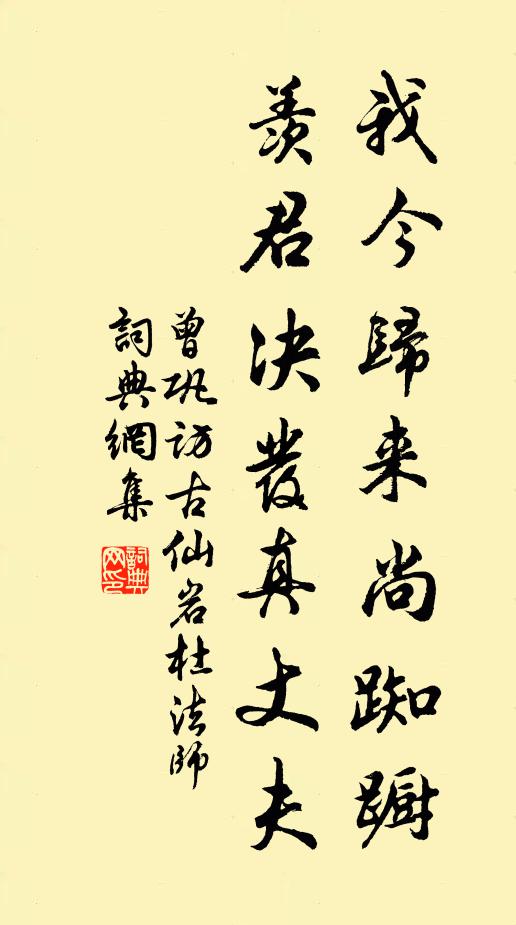 我今歸来尚踟蹰
羨君决發真丈夫
曾巩訪古仙岩杜法師
詞典網集
詞典网印